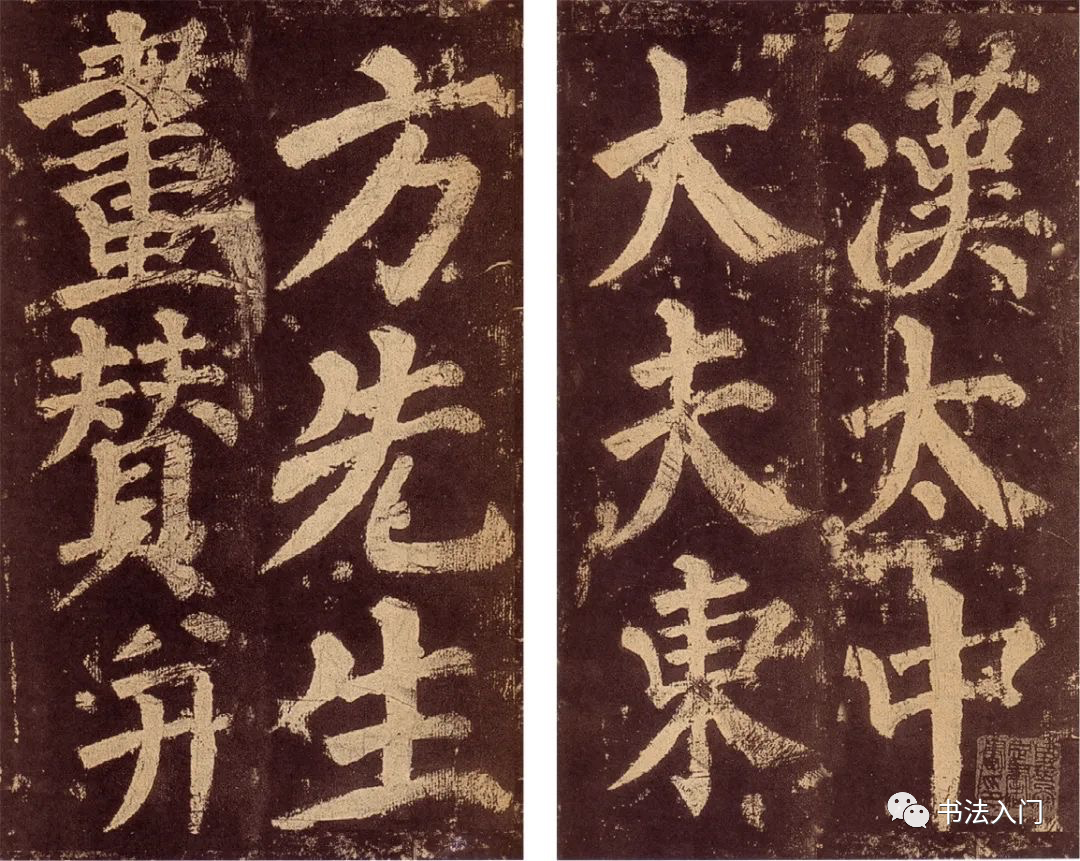 漢太中
大夫東
方先生
畫賛并
书法入门